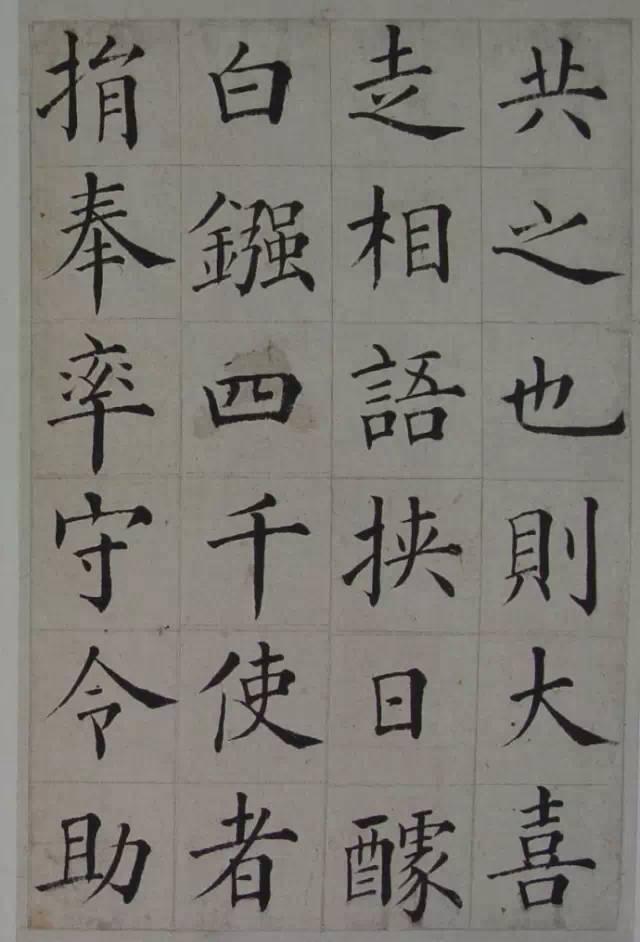 共之也則大喜
走相語挾日醵
白鏹四千使者
捐奉率守令助